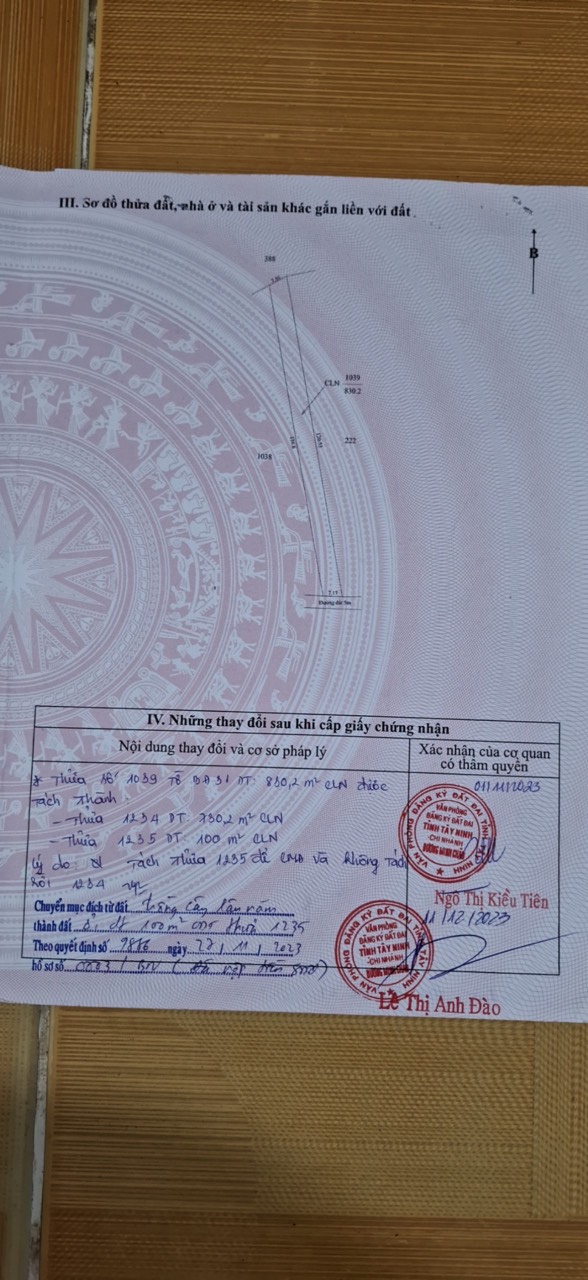 III. Sơ đồ thửa đất, nhà ở và tài sản khác gắn liền với đất
B
388
CLN 1039
830.2
222
1038
7.19
Đường đất 7m
IV. Những thay đổi sau khi cấp giấy chứng nhận
Nội dung thay đổi và cơ sở pháp lý
Xác nhận của cơ quan
có thẩm quyền
* Thửa số 1039 Tờ BĐ 31 DT: 830,2 m² CLN được
tách thành:
- Thửa 1234 DT: 730,2 m² CLN
- Thửa 1235 DT: 100 m² CLN
lý do: Tách thửa 1235 để CMĐ và không tách
1234
01/11/2023
VĂN PHÒNG ĐĂNG KÝ ĐẤT ĐAI TỈNH TÂY NINH
VĂN PHÒNG
ĐĂNG KÝ ĐẤT ĐAI
TỈNH TÂY NINH
CHI NHÁNH
DƯƠNG MINH CHÂU
Ngô Thị Kiều Tiên
Chuyển mục đích từ đất trồng cây lâu năm
thành đất ở, dt 100m² thửa 1235
Theo quyết định số 9886 ngày 27/11/2023
hồ sơ số
11/12/2023
VĂN PHÒNG ĐĂNG KÝ ĐẤT ĐAI TỈNH TÂY NINH
VĂN PHÒNG
ĐĂNG KÝ ĐẤT ĐAI
TỈNH TÂY NINH
CHI NHÁNH
DƯƠNG MINH CHÂU
Lê Thị Anh Đào